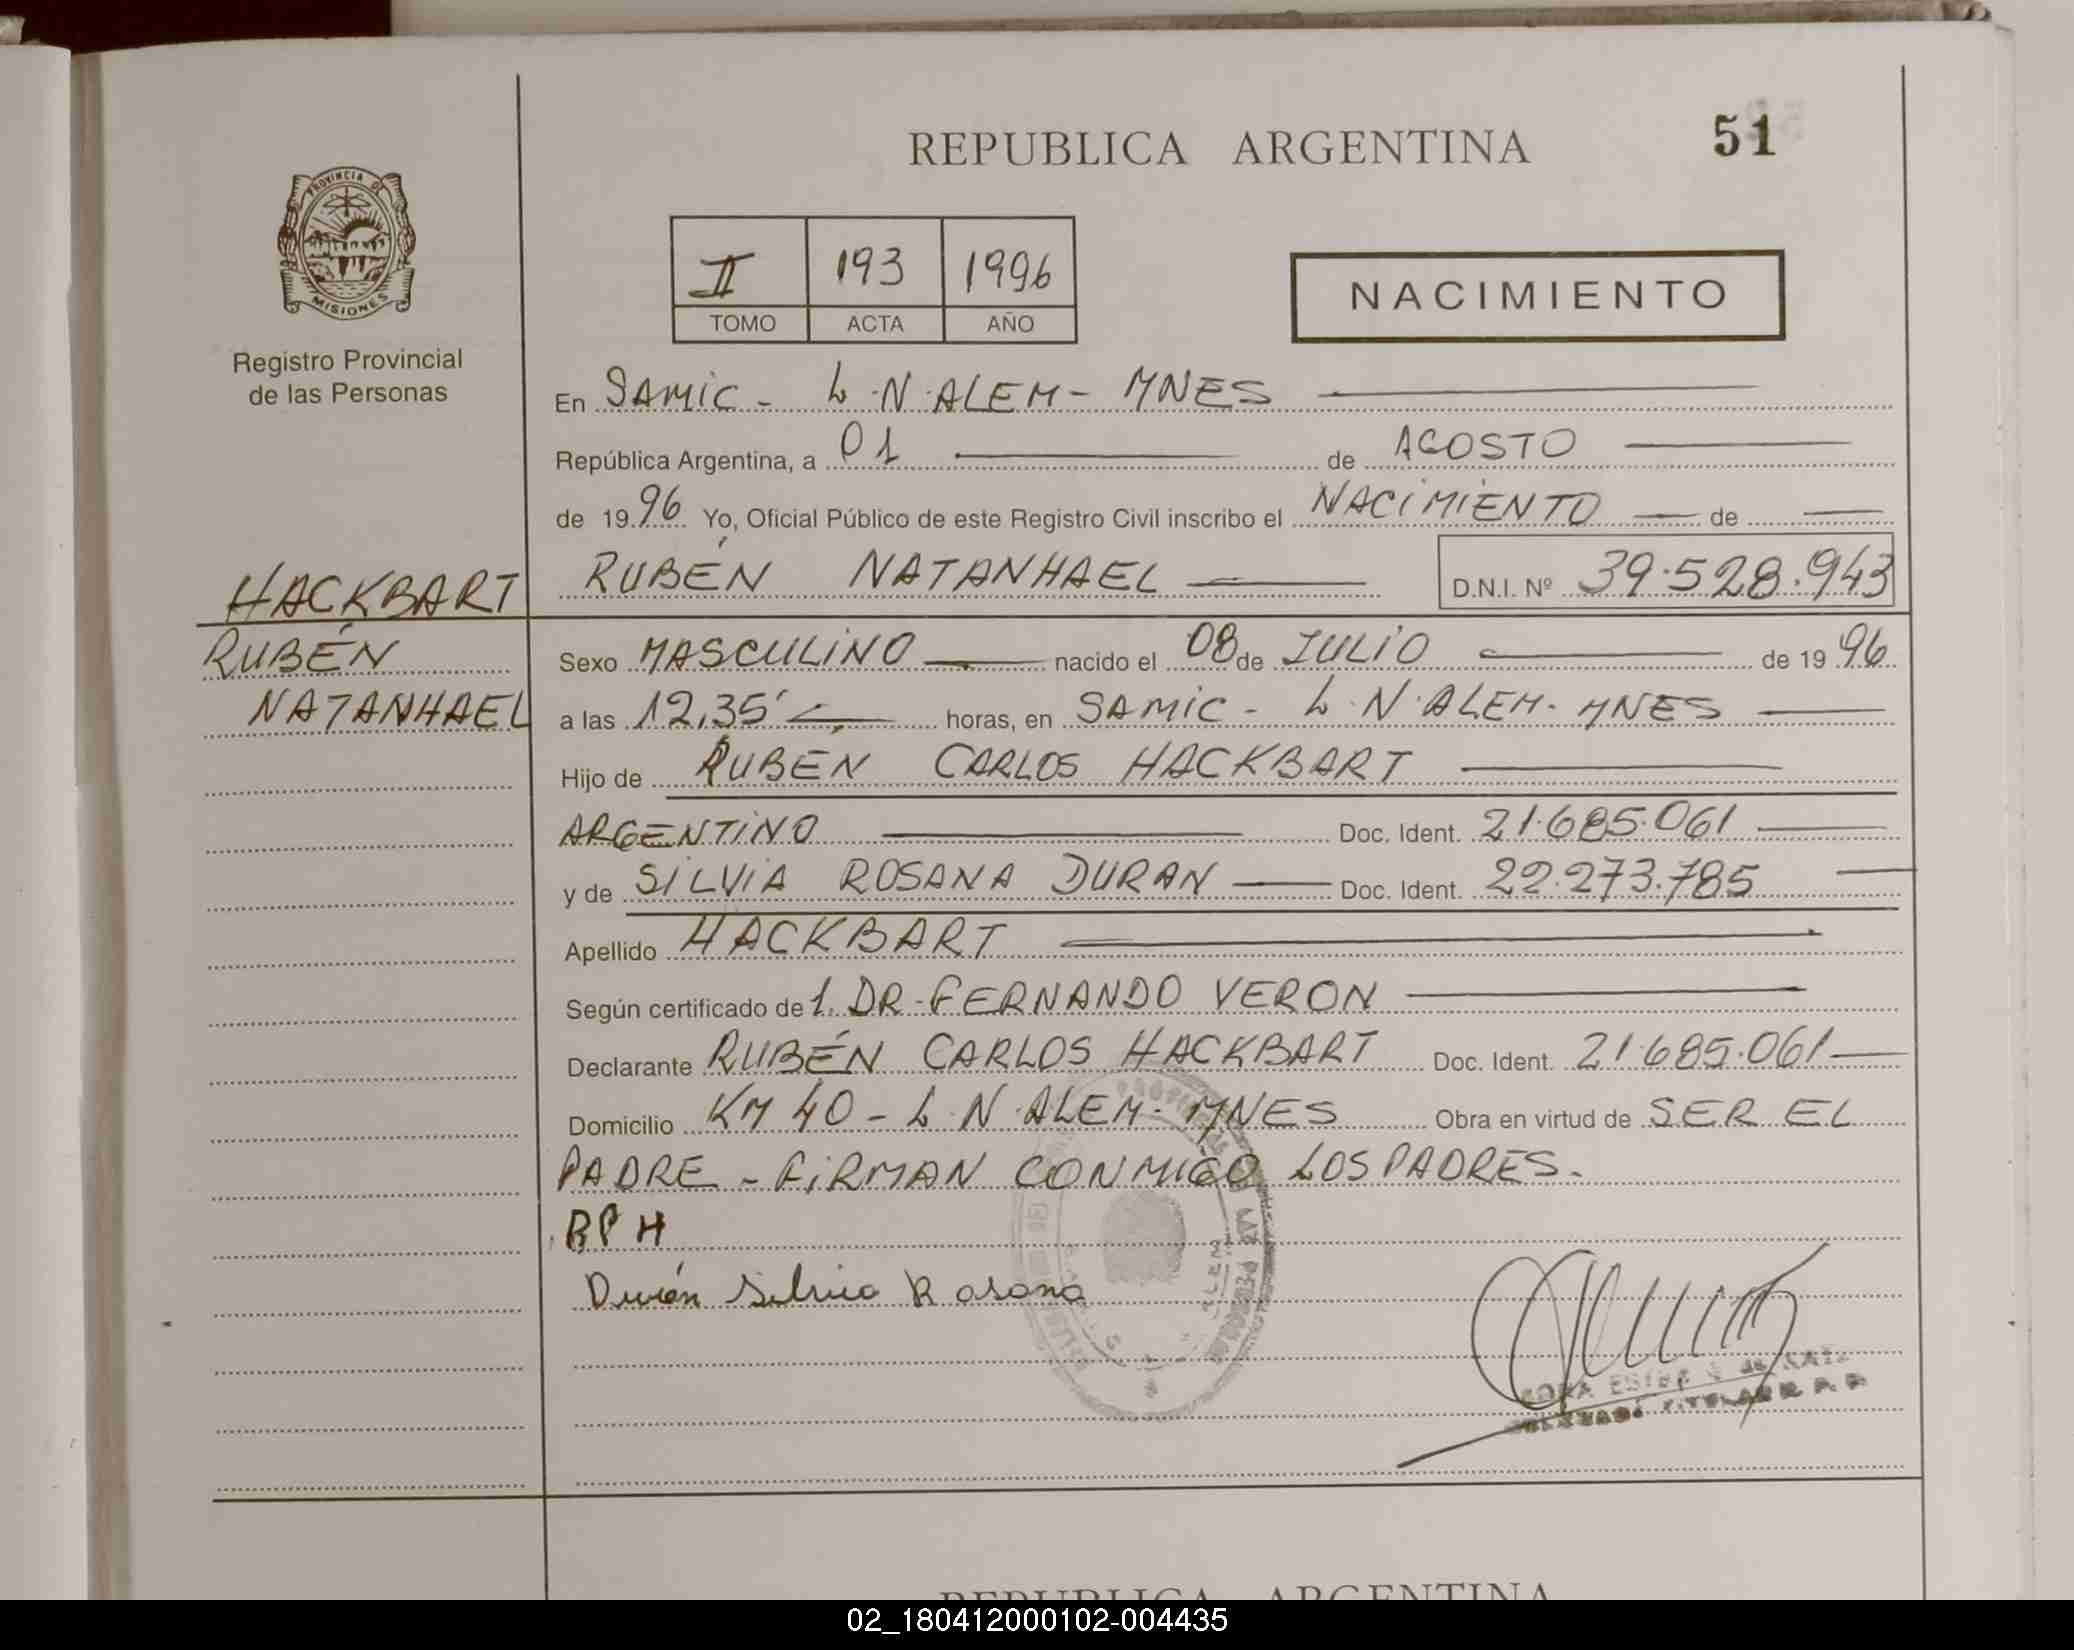 REPUBLICA ARGENTINA
51
PROVINCIA DE
MISIONES
Registro Provincial
de las Personas
II 193 1996
TOMO ACTA AÑO
NACIMIENTO
En SAMIC - L.N.ALEM - MNES
República Argentina, a 01 de AGOSTO
de 19 96 Yo, Oficial Público de este Registro Civil inscribo el NACIMIENTO de
RUBÉN NATANHAEL D.N.I. Nº 39.528.943
HACKBART
RUBÉN
NATANHAEL
Sexo MASCULINO nacido el 08 de JULIO de 19 96
a las 12,35' horas, en SAMIC - L.N.ALEM - MNES
Hijo de RUBÉN CARLOS HACKBART
ARGENTINO Doc. Ident. 21.685.061
y de SILVIA ROSANA DURAN Doc. Ident. 22.273.785
Apellido HACKBART
Según certificado de 1. DR. FERNANDO VERON
Declarante RUBÉN CARLOS HACKBART Doc. Ident. 21.685.061
Domicilio KM 40 - L.N.ALEM - MNES Obra en virtud de SER EL
PADRE - FIRMAN CONMIGO LOS PADRES.
RPH
Durán Silvia Rosana
REPUBLICA ARGENTINA
02_180412000102-004435